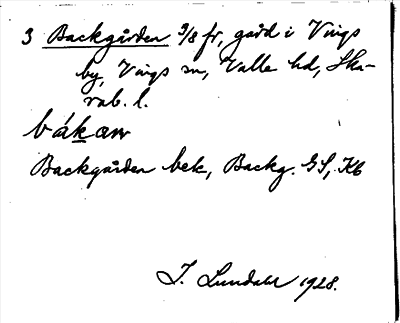 3 Backgården 3/8 fr, gård i Vings
by, Vings sn, Valle hd, Ska-
rab. l.
bákaɳ
Backgården bek, Backg. GS, Kb
I. Lundahl 1928.